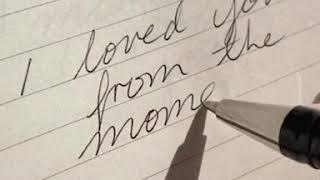 I loved you
from the
mome